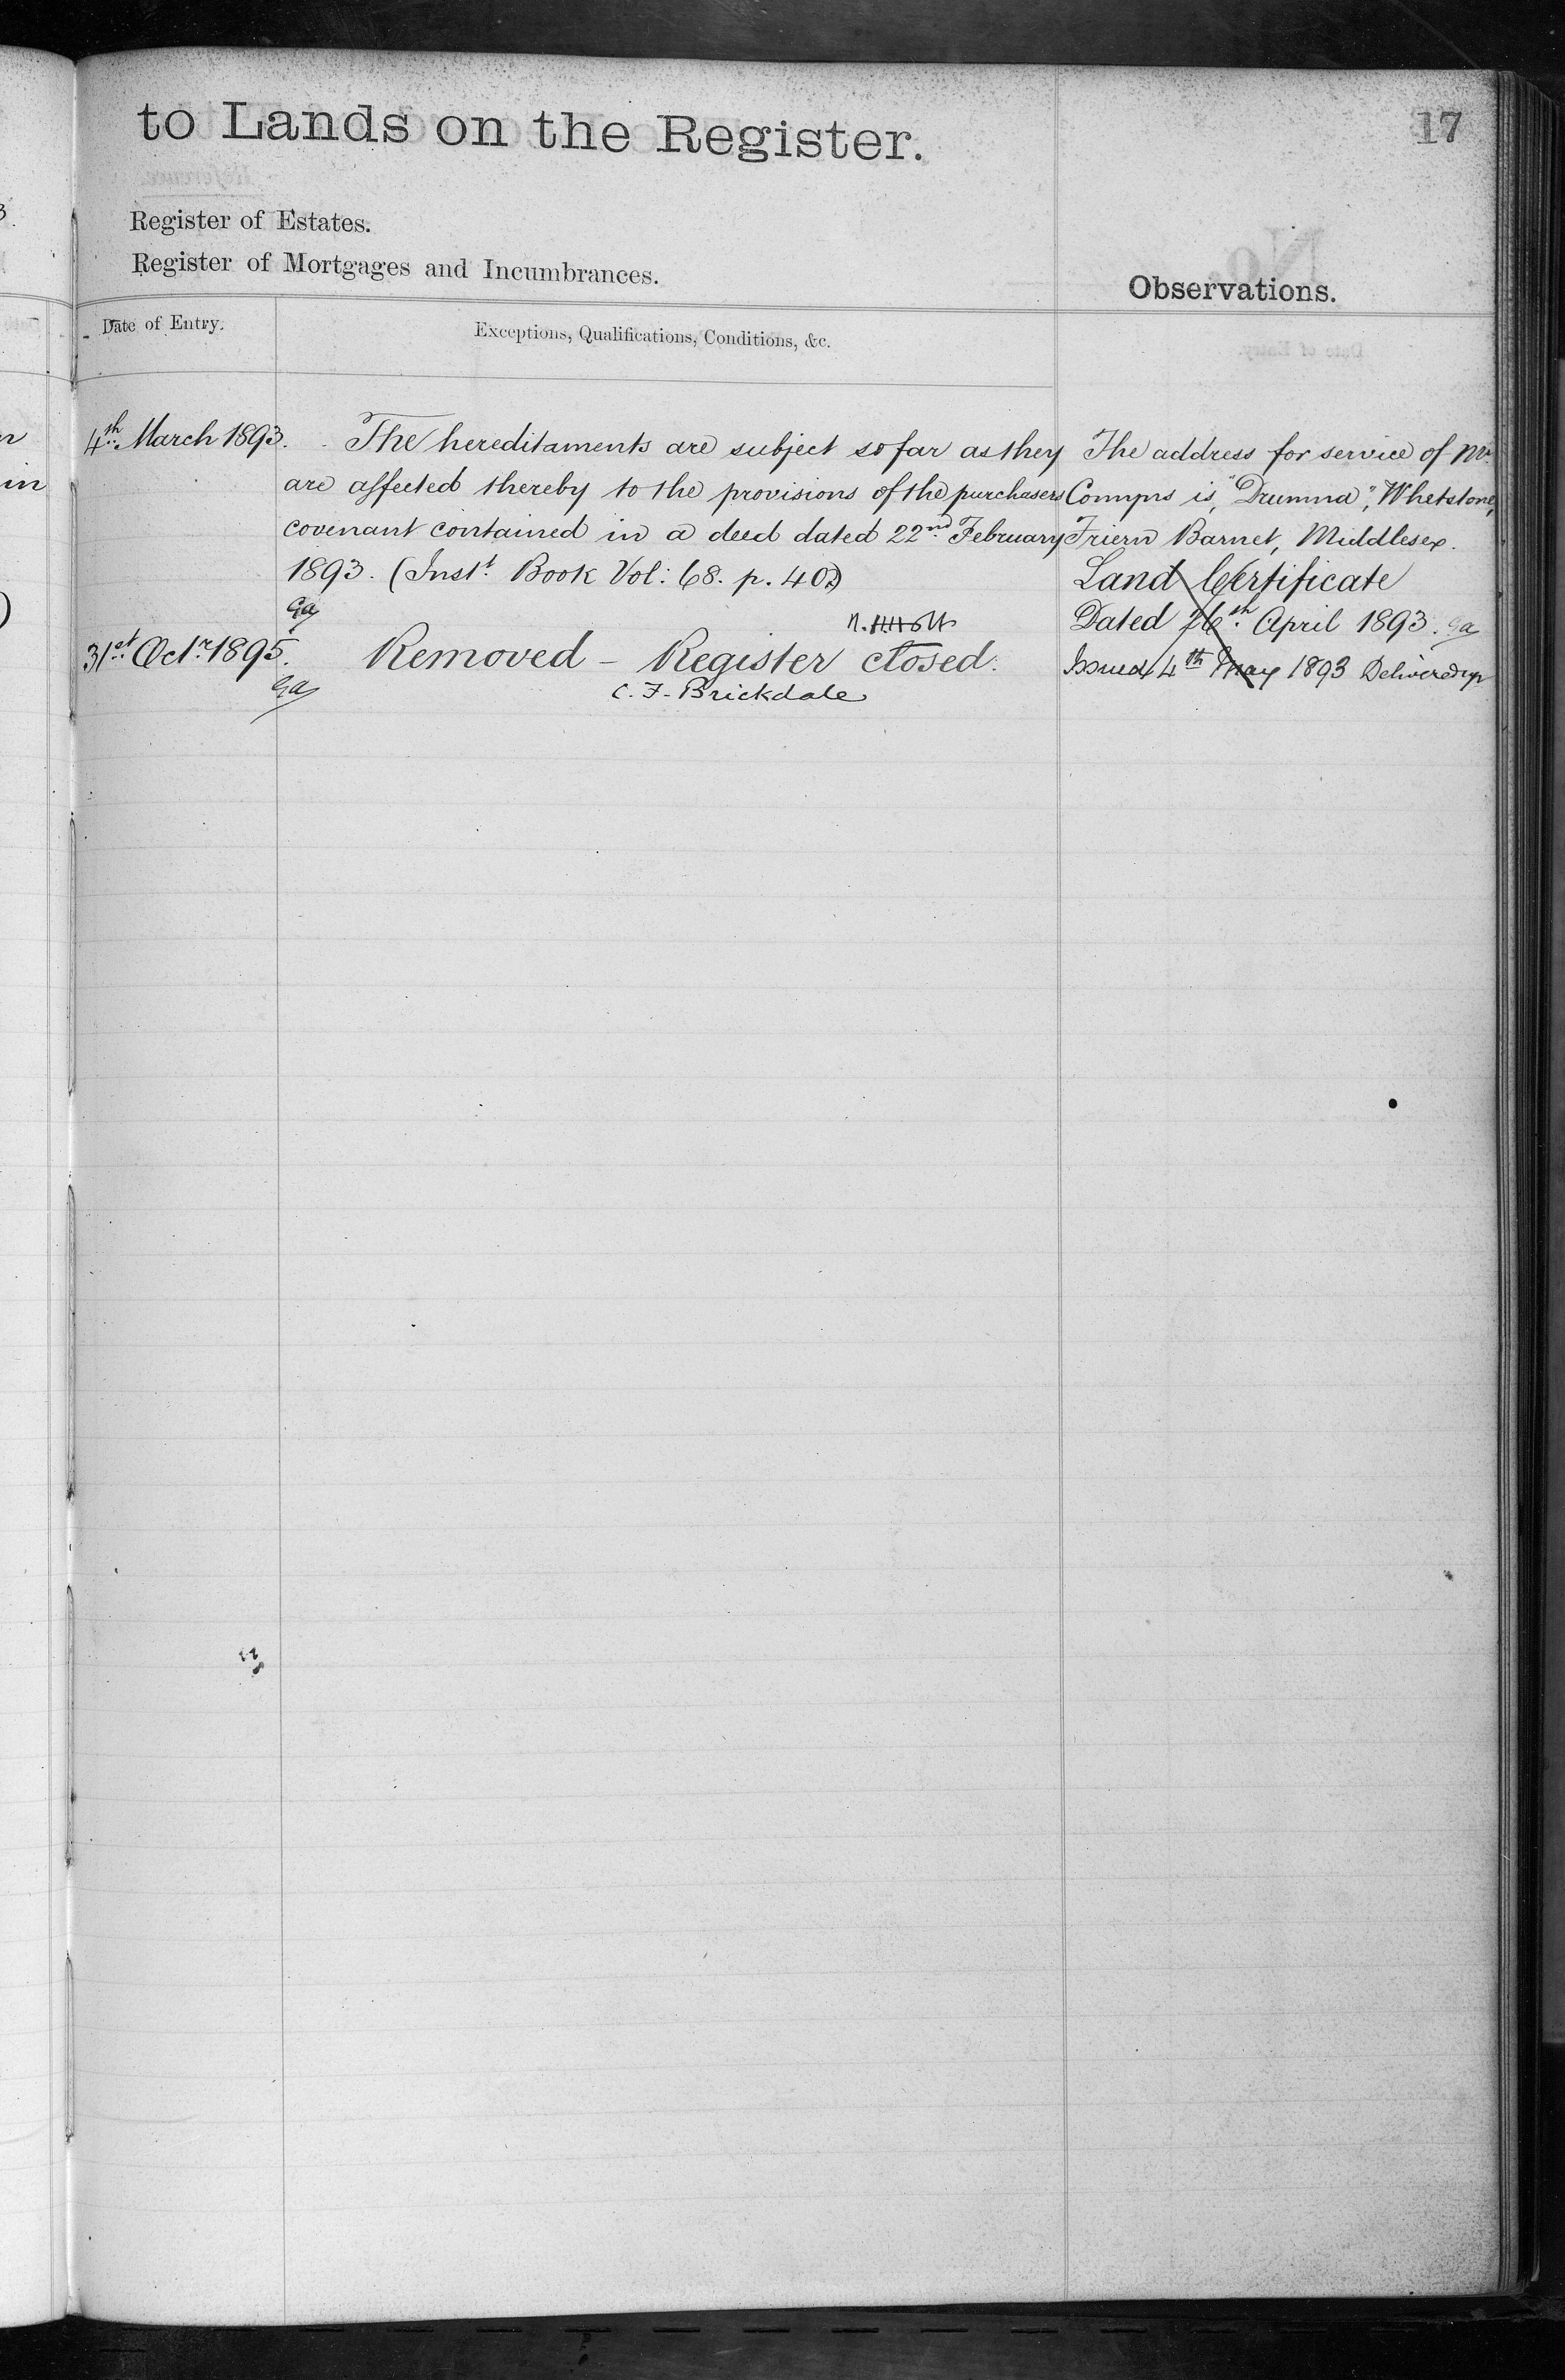 to Lands on the Register.
17
Register of Estates.
Register of Mortgages and Incumbrances.
Observations.
Date of Entry.
Exceptions, Qualifications, Conditions, &c.
4th March 1893.
The hereditaments are subject so far as they
are affected thereby to the provisions of the purchasers
covenant contained in a deed dated 22nd February
1893. (Inst. Book Vol: 68. p. 402)
Ga
31st Octr 1895.
Ga
Removed – Register closed.
C. F. Brickdale
The address for service of Mr
Comyns is, "Drumna", Whetstone,
Friern Barnet, Middlesex.
Land Certificate
Dated 26th April 1893. Ga
Issued 4th May 1893 Delivered up